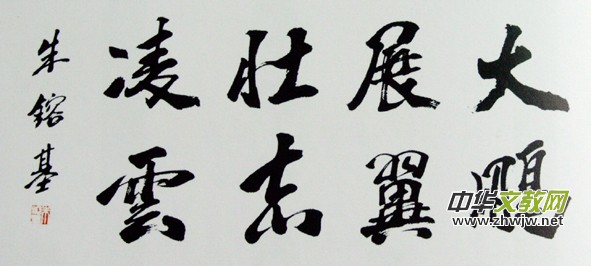 大鵬
展翼
壮志
凌雲
朱鎔基
中华文教网
www.zhwjw.net